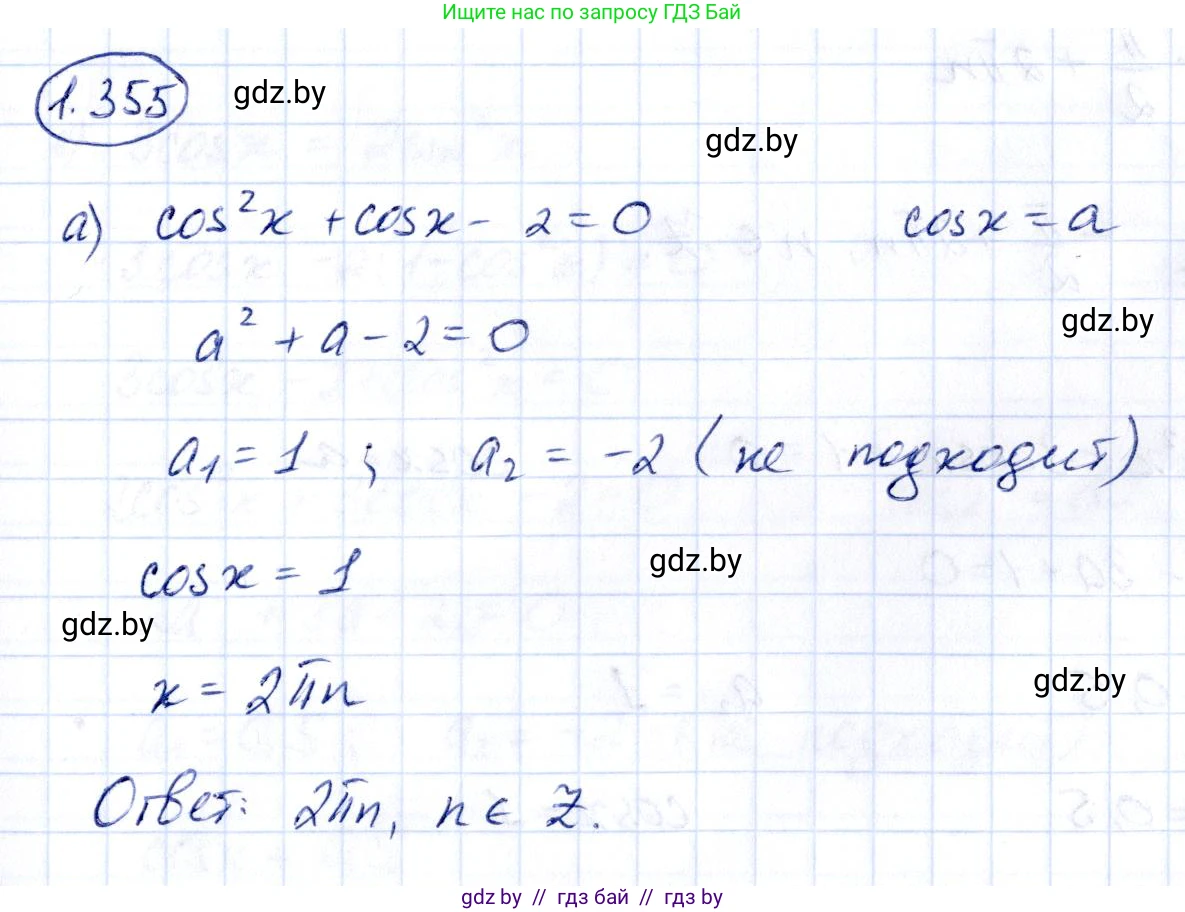 Ищите нас по запросу ГДЗ Бай
1.355 gdz.by
gdz.by
а) cos²x + cosx - 2 = 0 cosx = a
gdz.by
a² + a - 2 = 0
a₁ = 1 ; a₂ = -2 (не подходит)
cosx = 1 gdz.by
gdz.by
x = 2πn gdz.by
Ответ: 2πn, n ∈ Z.
gdz.by // гдз бай // гдз by